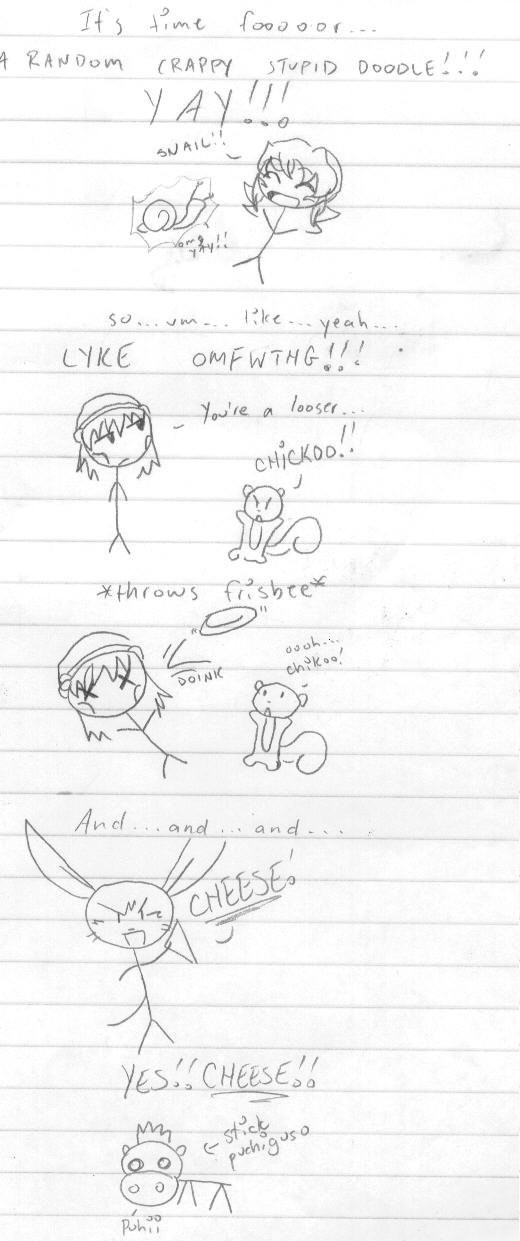 It's time fooooor...
A RANDOM CRAPPY STUPID DOODLE!!!
YAY!!!
SNAIL!!
omg
YAY!!
so...um... like...yeah...
LYKE OMFWTHG!!!
You're a looser...
CHiCKOO!!
*throws frisbee*
DOINK
ouuh...
chikoo!
And...and...and...
CHEESE!
YES!! CHEESE!!
stick
puchiguso
Puhii